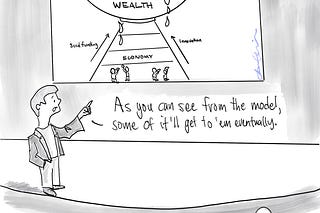 WEALTH
Innovation
ECONOMY
As you can see from the model,
some of it'll get to 'em eventually.